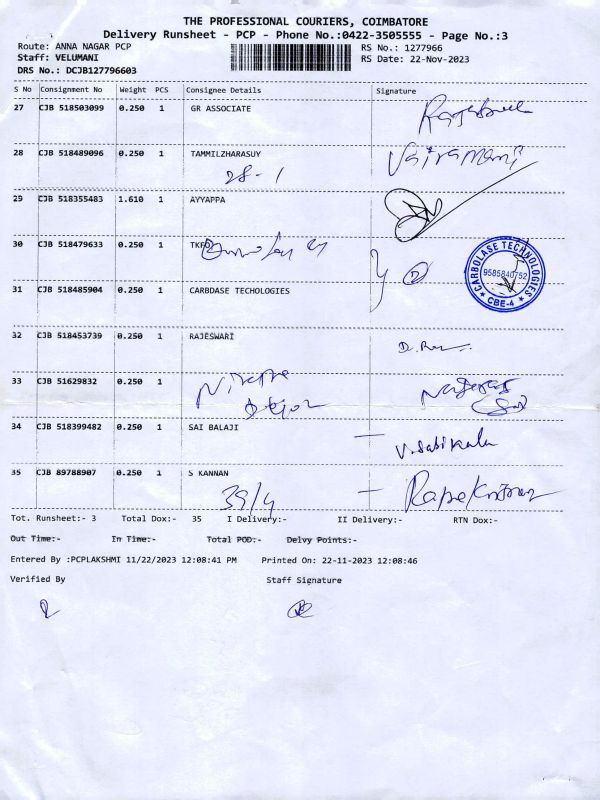 THE PROFESSIONAL COURIERS, COIMBATORE
Delivery Runsheet - PCP - Phone No.:0422-3505555 - Page No.:3
Route: ANNA NAGAR PCP
RS No.: 1277966
Staff: VELUMANI
RS Date: 22-Nov-2023
DRS No.: DCJB127796603
S No Consignment No Weight PCS Consignee Details Signature
27 CJB 518503099 0.250 1 GR ASSOCIATE
28 CJB 518489096 0.250 1 TAMMILZHARASUY Vairamani
28-1
29 CJB 518355483 1.610 1 AYYAPPA
30 CJB 518479633 0.250 1
CARBOLASE TECHNOLOGIES
9585840752
CBE-4
31 CJB 518485904 0.250 1 CARBDASE TECHOLOGIES
32 CJB 518453739 0.250 1 RAJESWARI
33 CJB 51629832 0.250 1
34 CJB 518399482 0.250 1 SAI BALAJI
V. Sasikala
35 CJB 89788907 0.250 1 S KANNAN
39/4
Tot. Runsheet:- 3 Total Dox:- 35 I Delivery:- II Delivery:- RTN Dox:-
Out Time:- In Time:- Total POD:- Delvy Points:-
Entered By :PCPLAKSHMI 11/22/2023 12:08:41 PM Printed On: 22-11-2023 12:08:46
Verified By Staff Signature